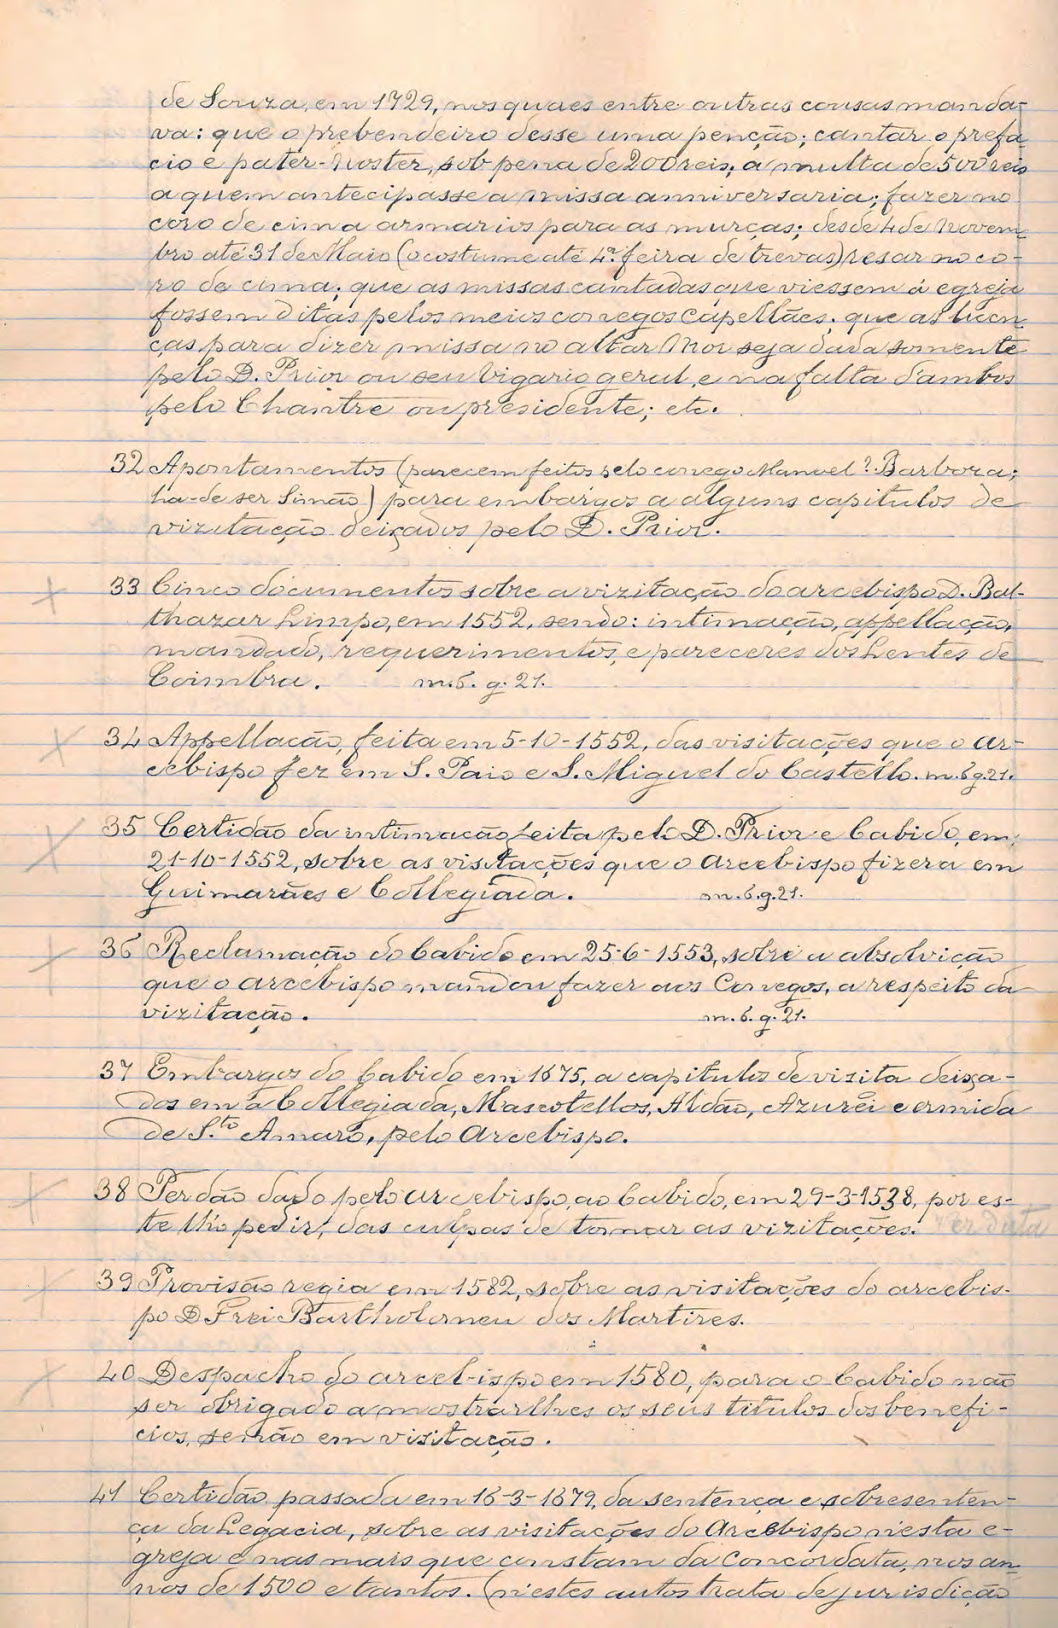 de Souza, em 1729, nos quaes entre outras cousas manda-
va: que o prebendeiro desse uma penção; cantar o prefa-
cio e pater-noster, sob pena de 200 reis; a multa de 500 reis
a quem antecipasse a missa anniversaria; fazer no
coro de cima armarios para as murças; desde 4 de Novem-
bro até 31 de Maio (o costume até 4ª feira de trevas) resar no co-
ro de cima; que as missas cantadas que viessem á egreja
fossem ditas pelos meios conegos Capellães; que as licen-
ças para dizer missa no altar Mor seja dada somente
pelo D. Prior ou seu Vigario geral, e na falta d'ambos
pelo Chantre ou presidente; etc.
32 Apontamentos (parecem feitos pelo conego Manuel? Barboza;
ha-de ser Simão) para embargos a alguns capitulos de
vizitação deixados pelo D. Prior.
33 Cinco documentos sobre a vizitação do arcebispo D. Bal-
thazar Limpo, em 1552, sendo: intimação, appellação,
mandado, requerimentos, e pareceres dos Lentes de
Coimbra. m. 6. g. 21.
34 Appellação, feita em 5-10-1552, das visitações que o ar-
cebispo fez em S. Paio e S. Miguel do Castello. m. 6 g. 21.
35 Certidão da intimação feita pelo D. Prior e Cabido, em
21-10-1552, sobre as visitações que o arcebispo fizera em
Guimarães e Collegiada. m. 6. g. 21.
36 Reclamação do Cabido em 25-6-1553, sobre a absolvição
que o arcebispo mandou fazer aos Conegos, a respeito da
vizitação. m. 6. g. 21.
37 Embargos do Cabido em 1675, a capitulos de visita deixa-
dos em a Collegiada, Mascotellos, Aldão, Azurêi e ermida
de S.to Amaro, pelo Arcebispo.
38 Perdão dado pelo arcebispo, ao Cabido, em 29-3-1538, por es-
te lh'o pedir, das culpas de tomar as vizitações. Ver data
39 Provisão regia em 1582, sobre as visitações do arcebis-
po D Frei Bartholomeu dos Martires.
40 Despacho do arcebispo em 1580, para o Cabido não
ser obrigado a mostrar lhes os seus titulos dos benefi-
cios, senão em visitação.
41 Certidão passada em 16-3-1679, da sentença e sobresenten-
ça da Legacia, sobre as visitações do Arcebispo n'esta e-
greja e nas mais que constam da Concordata, nos an-
nos de 1500 e tantos. (n'estes autos trata de jurisdição